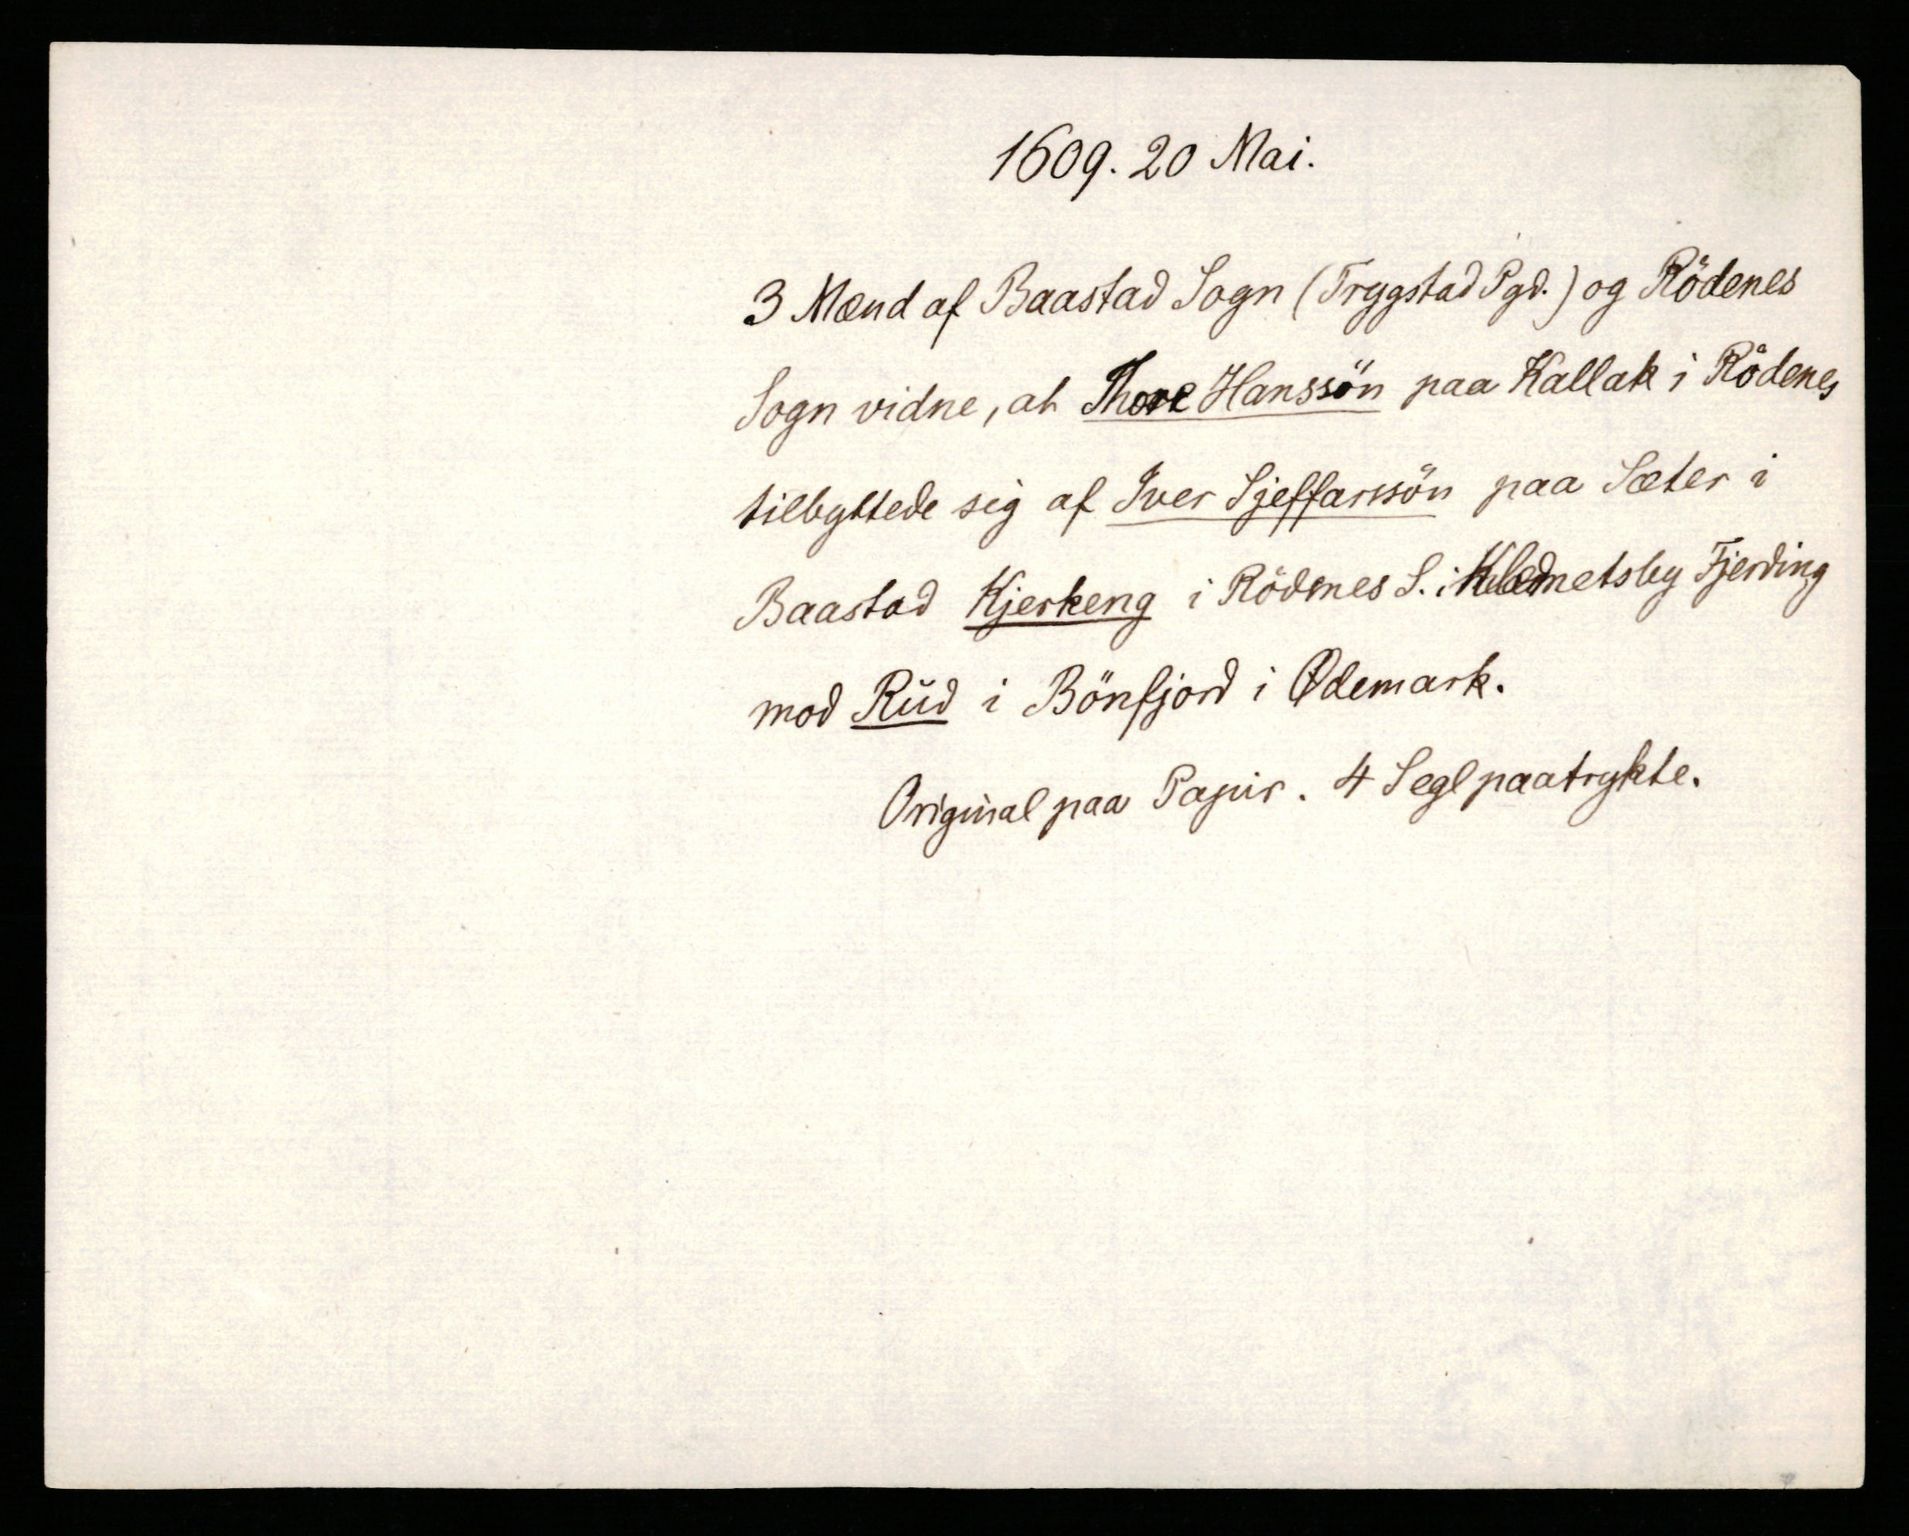 1609. 20 Mai.
3 Mænd af Baastad Sogn (Trygstad Pgd.) og Rödenes
Sogn vidne, at Thore Hanssön paa Kallak i Rödenes
tilbyttede sig af Iver Sjeffarssön paa Sæter i
Baastad Kjerkeng i Rödenes S. i Klemetsby Fjerding
mod Rud i Bönfjord i Ødemark.
Original paa Papir. 4 Segl paatrykte.